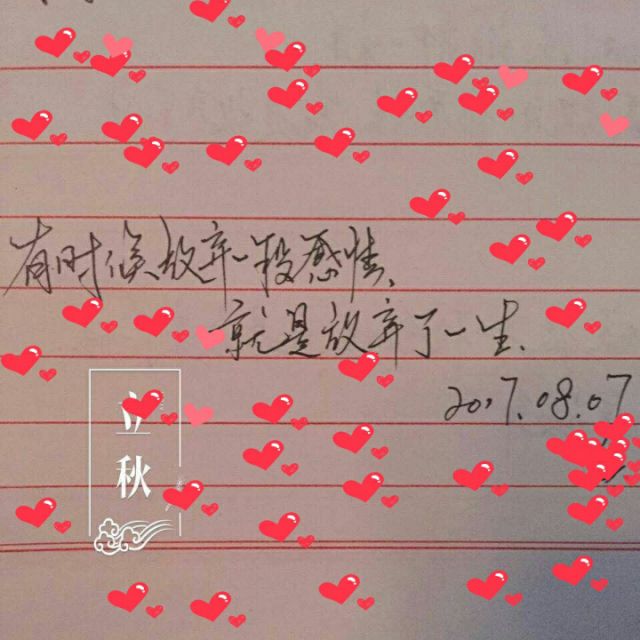 有时候放弃一段感情、
就是放弃了一生、
2017.08.07
立
秋